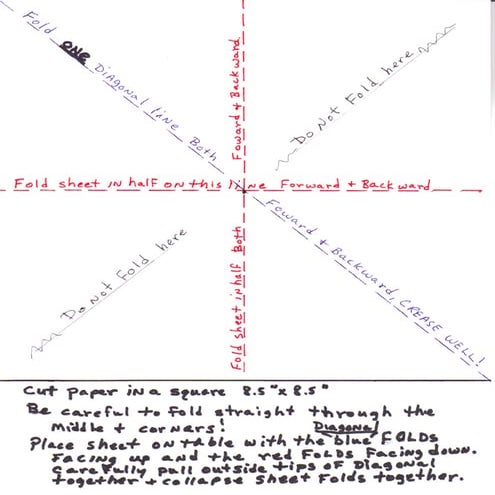 Fold ONE Diagonal line Both
Foward + Backward, CREASE WELL!
Fold sheet in half Both
Foward + Backward
Do Not Fold here
Fold sheet in half on this line Forward + Backward
Do Not Fold here
Cut paper in a square 8.5" x 8.5"
Be careful to fold straight through the
Middle + corners!
Diagonal
Place sheet on table with the blue FOLDS
Facing up and the red FOLDS Facing down.
Carefully pull outside tips of Diagonal
together + collapse sheet Folds together.